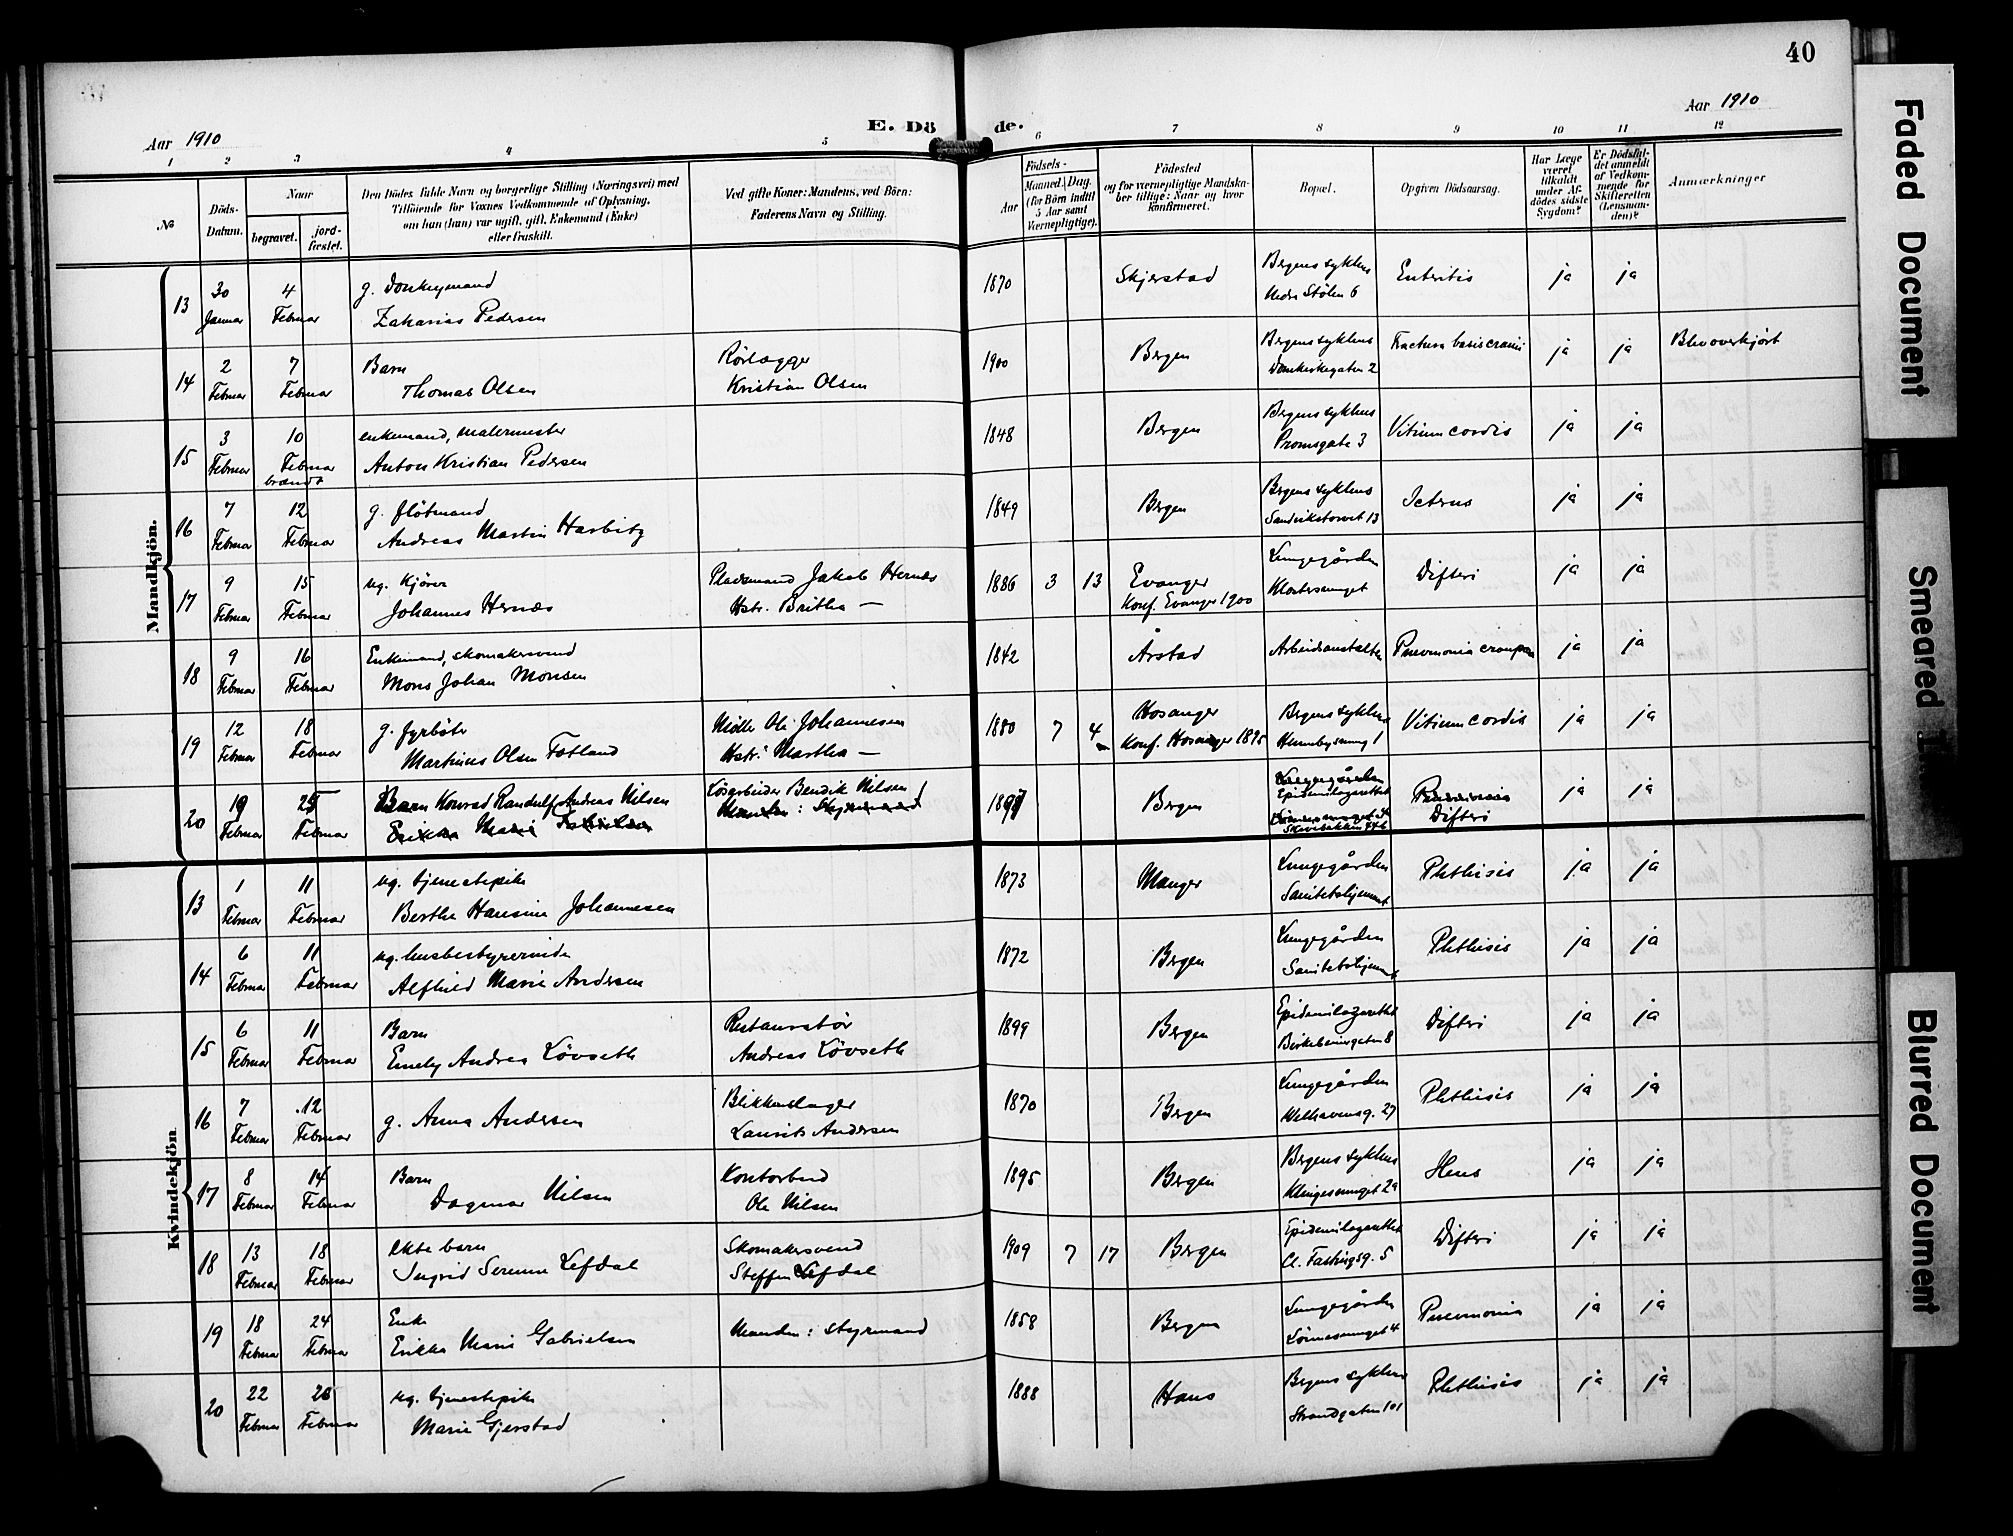 40
Aar 1910
Aar 1910
E. Dö de.
1 2 3 4 5 6 7 8 9 10 11 12
№
Döds-Datum.
Naar
begravet.
jord-fæstet.
Den Dödes fulde Navn og borgerlige Stilling (Næringsvei) med
Tilföiende for Voxnes Vedkommende af Oplysning,
om hun (han) var ugift, gift, Enkemand (Enke)
eller fraskilt.
Ved gifte Koner: Mandens, ved Börn:
Faderens Navn og Stilling.
Aar
Födsels-
Maaned. Dag.
(for Börn indtil
5 Aar samt
Værnepligtige).
Födested
og for værnepligtige Mandska-
ber tillige: Naar og hvor
konfirmeret.
Bopæl.
Opgiven Dödsaarsag.
Har Læge
været
tilkaldt
under Af-
dödes sidste
Sygdom?
Er Dödsfal-
det anmeldt
af Vedkom-
mende for
Skifteretten
(Lensman-
den)?
Anmærkninger
Mandkjön.
13 30 Januar 4 Februar g. Donkeymand
Zakarias Pedersen
1870 Skjerstad Bergens sykehus
Nedre Stølen 6 Enteritis ja ja
14 2 Februar 7 Februar Barn
Thomas Olsen
Rørlægger
Kristian Olsen
1900 Bergen Bergens sykehus
Domkirkegaten 2 Fractura basis cranii ja ja Blev overkjørt
15 3 Februar 10 Februar brændt enkemand, malermester
Anton Kristian Pedersen
1848 Bergen Bergens sykehus
Promsgate 3 Vitium cordis ja ja
16 7 Februar 12 Februar g. fløtmand
Andreas Martin Harbitz
1849 Bergen Bergens sykehus
Sandvikstorvet 13 Icterus ja ja
17 9 Februar 15 Februar ug. Kjører
Johannes Hernæs
Pladsmand Jakob Hernæs
Hstr. Britha —
1886 3 13 Evanger
Konf. Evanger 1900 Lungegården
Klostersmuget Difteri ja ja
18 9 Februar 16 Februar Enkemand, skomakersvend
Mons Johan Monsen
1842 Årstad Arbeidsanstalten Pneumonia crouposa ja ja
19 12 Februar 18 Februar g. fyrbøter
Martinus Olsen Fotland
Møller Ole Johannesen
Hstr. Martha —
1880 7 4 Hosanger
Konf. Hosanger 1895 Bergens sykehus
1 Vitium cordis ja ja
20 19 Februar 25 Februar Barn Konrad Randulf Andreas Nilsen
Løsarbeider Bendik Nilsen
Manden: Styrmand
1897 Bergen Lungegården
Epidemilazarettet
Difteri ja ja
Kvindekjön
13 1 Februar 11 Februar ug. tjenestepike
Berthe Hansine Johannesen
1873 Manger Lungegården
Sanitetshjemmet Phthisis ja ja
14 6 Februar 11 Februar ug. husbestyrerinde
Alfhild Marie Andersen
1872 Bergen Lungegården
Sanitetshjemmet Phthisis ja ja
15 6 Februar 11 Februar Barn
Emely Andrea Løvseth
Restauratør
Andreas Løvseth
1899 Bergen Epidemilazarettet
Birkebeinergaten 8 Difteri ja ja
16 7 Februar 12 Februar g. Anna Andersen
Blikkenslager
Laurits Andersen
1870 Bergen Lungegården
Welhavensg. 27 Phthisis ja ja
17 8 Februar 14 Februar Barn
Dagmar Nilsen
Kontorbud
Ole Nilsen
1895 Bergen Bergens sykehus
Klingesmuget 2a ja ja
18 13 Februar 18 Februar ekte barn
Ingrid Serene Lefdal
Skomakersvend
Steffen Lefdal
1909 7 17 Bergen Epidemilazarettet
Cl. Fastingsg. 5 Difteri ja ja
19 18 Februar 24 Februar Enke
Erikka Marie Gabrielsen
Manden: styrmand
1858 Bergen Lungegården
4 Pneumonia ja ja
20 22 Februar 28 Februar ug. tjenestepike
Marie Gjerstad
1888 Haus Bergens sykehus
Strandgaten 101 Phthisis ja ja
Faded Document
Smeared
Blurred Document